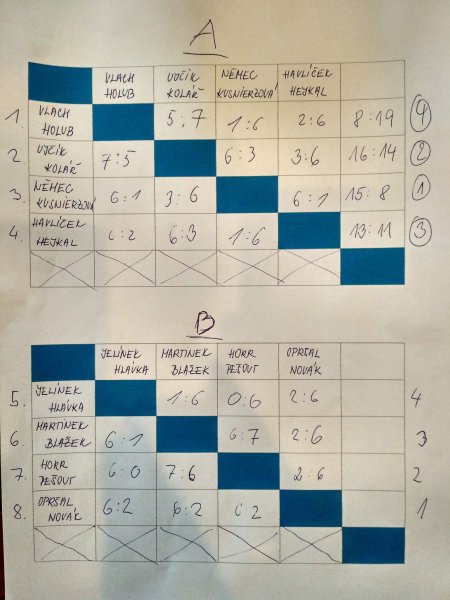 A
VLACH HOLUB UJČÍK KOLÁŘ NĚMEC KUSNIERZOVÁ HAVLÍČEK HEJKAL
1. VLACH HOLUB 5:7 1:6 2:6 8:19 4
2. UJČÍK KOLÁŘ 7:5 6:3 3:6 16:14 2
3. NĚMEC KUSNIERZOVÁ 6:1 3:6 6:1 15:8 1
4. HAVLÍČEK HEJKAL 6:2 6:3 1:6 13:11 3
B
JELÍNEK HLÁVKA MARTINEK BLAŽEK HORR PEŠOUT OPRŠAL NOVÁK
5. JELÍNEK HLÁVKA 1:6 0:6 2:6 4
6. MARTINEK BLAŽEK 6:1 6:7 2:6 3
7. HORR PEŠOUT 6:0 7:6 2:6 2
8. OPRŠAL NOVÁK 6:2 6:2 6 2 1